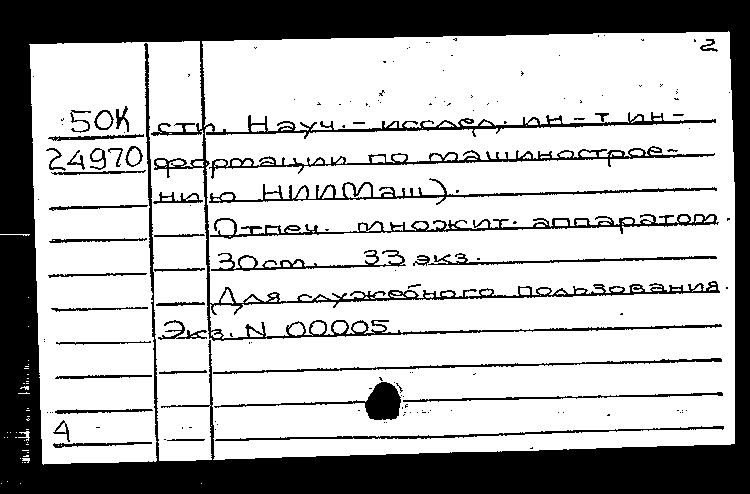 2
50К сти. Науч.-исслед. ин-т ин-
24970 формации по машинострое-
нию НИИМаш).
Отпеч. множит. аппаратом.
30 см. 33 экз.
Для служебного пользования.
Экз. N 00005.
4